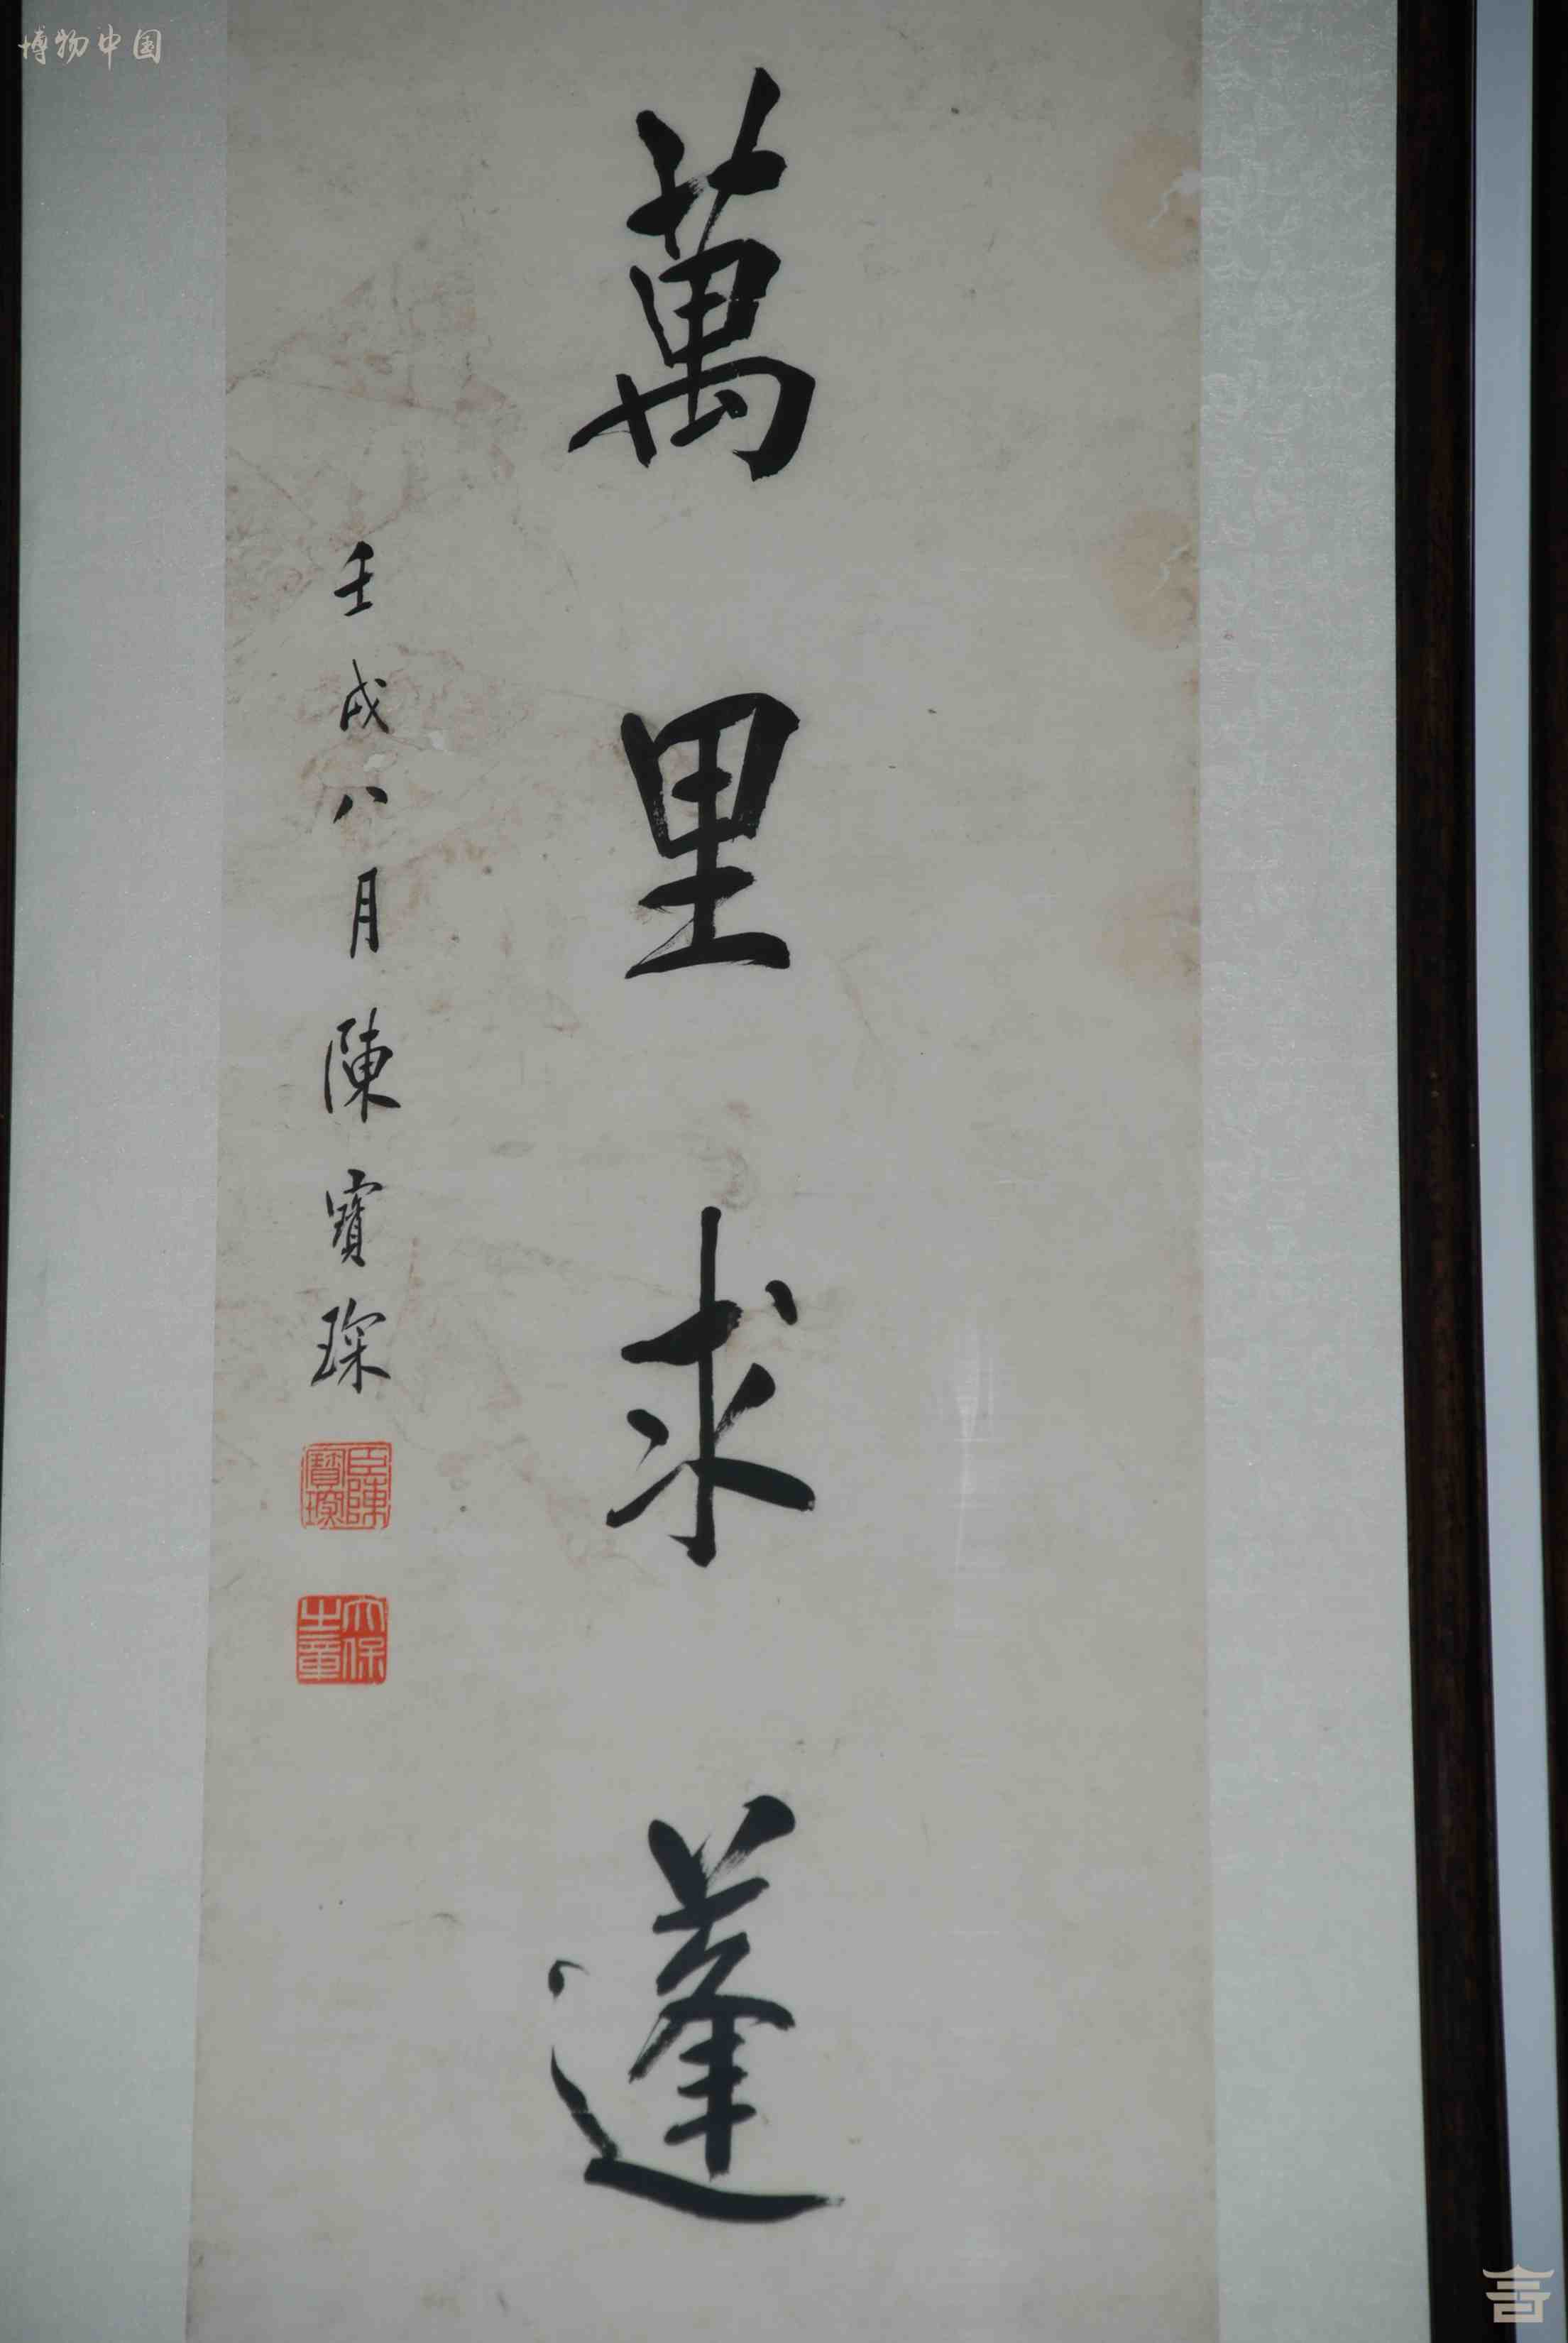 博物中国
萬里求蓬
壬戌八月陳寶琛
臣陳寶琛
太保之章